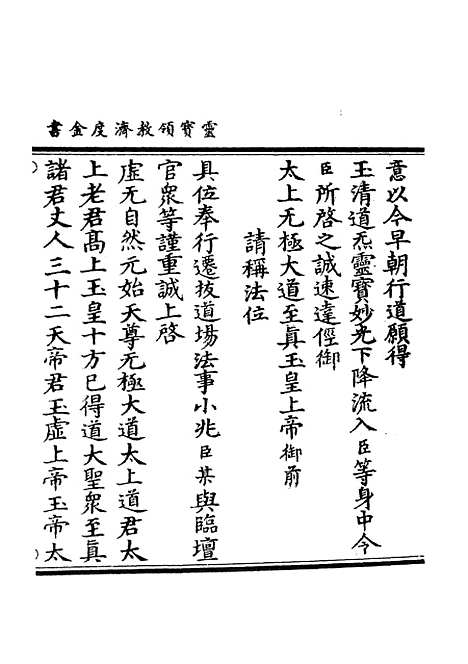 靈寶領教濟度金書
意以今早朝行道願得
玉清道炁靈寶妙光下降流入臣等身中今
臣所啓之誠速達徑御
太上无極大道至眞玉皇上帝御前
請稱法位
具位奉行遷拔道場法事小兆臣某與臨壇
官衆等謹重誠上啓
虛无自然元始天尊无極大道太上道君太
上老君髙上玉皇十方已得道大聖衆至眞
諸君丈人三十二天帝君玉虛上帝玉帝太